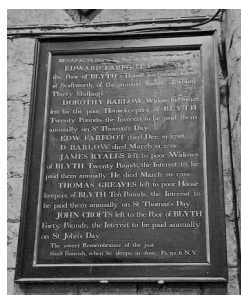 BENEFACTIONS
EDWARD FARFOOT
the Poor of BLYTH
at Scofworth, of the annual Value of about
Thirty Shillings
DOROTHY BARLOW, Widow
left to the poor Housekeepers of BLYTH
Twenty Pounds, the Interest to be paid them
annually on St Thomas's Day.
EDW. FARFOOT died Dec.
D. BARLOW died March
JAMES RYALLS left to poor Widows
of BLYTH Twenty Pounds, the Interest to be
paid them annually. He died March
THOMAS GREAVES left to poor House
keepers of BLYTH Ten Pounds, the Interest to
be paid them annually on St Thomas's Day.
JOHN CROFTS left to the Poor of BLYTH
Forty Pounds, the Interest to be paid annually
on St. John's Day.
The sweet Remembrance of the just
Shall flourish, when he sleeps in dust. Ps.